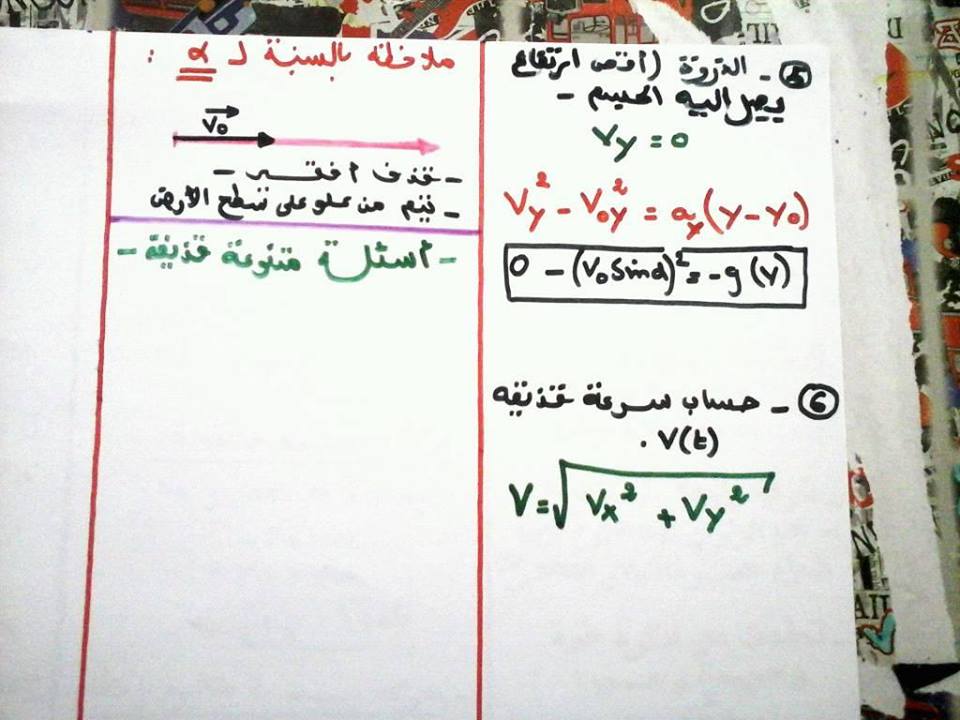 5 - الذروة (أقصى ارتفاع
يصل اليه الجسم -
Vy = 0
Vy² - V₀y² = ay(y - y₀)
0 - (V₀ Sinα)² = -g (y)
6 - حساب سرعة قذيفة
V(t) .
V = √Vx² + Vy²
ملاحظة بالنسبة لـ α :
V₀
- قذف أفقي -
- يتم من علو على سطح الأرض
- أسئلة متنوعة قذيفة -